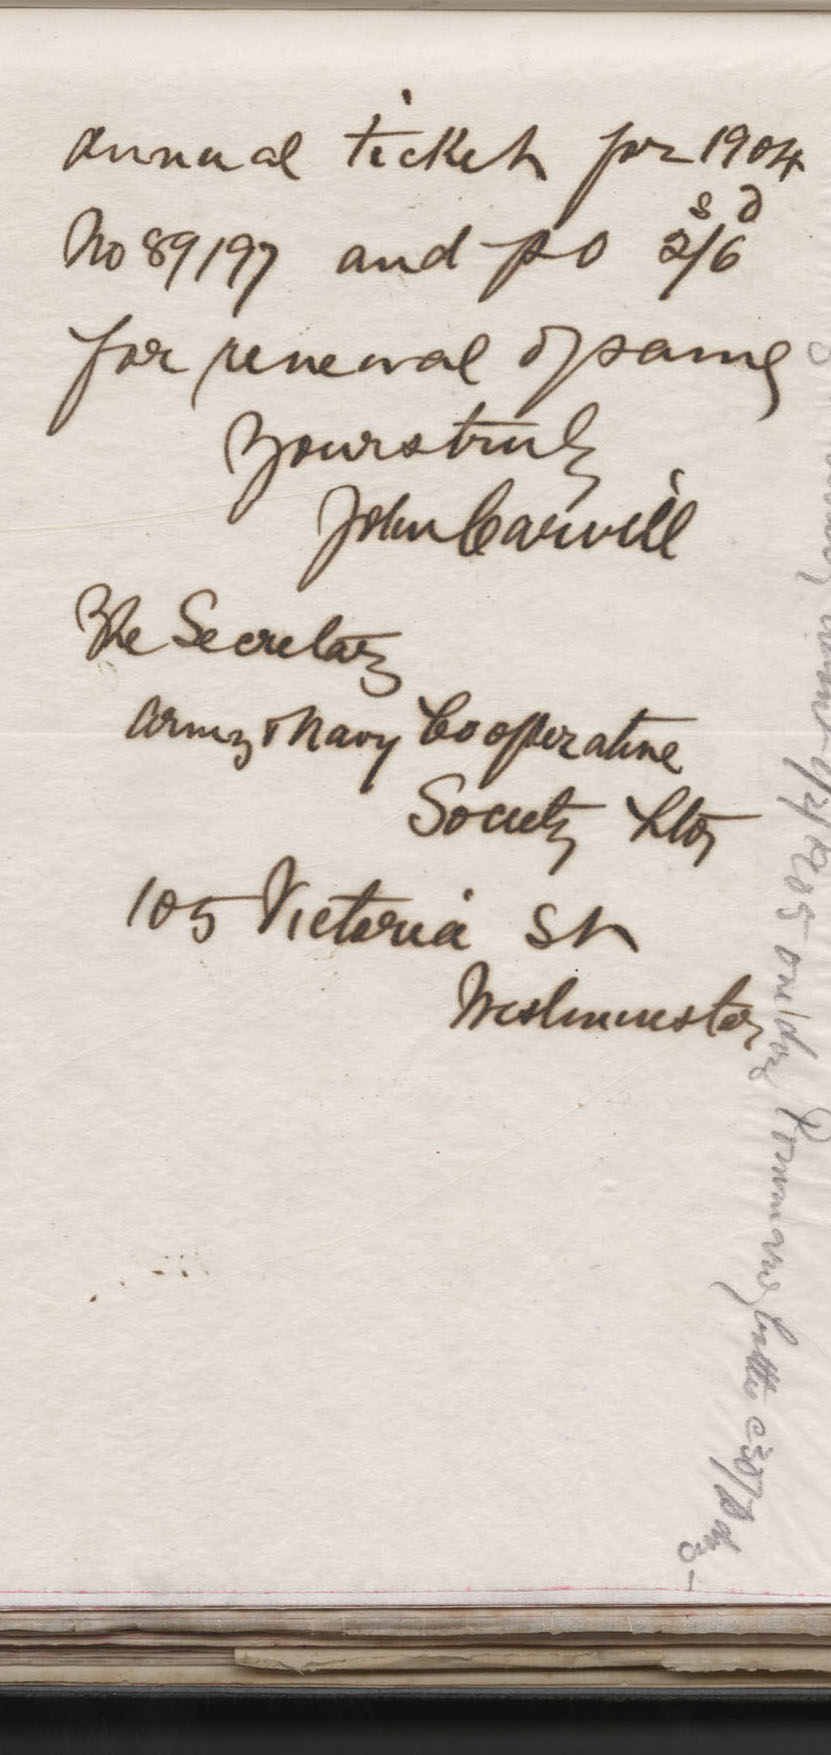 annual ticket for 1904
No 89197 and po 2/6
s d
for renewal of same
Yours truly
John Carvill
The Secretary
Army & Navy Cooperative
Society Ltd
105 Victoria St
Westminster
1905 on